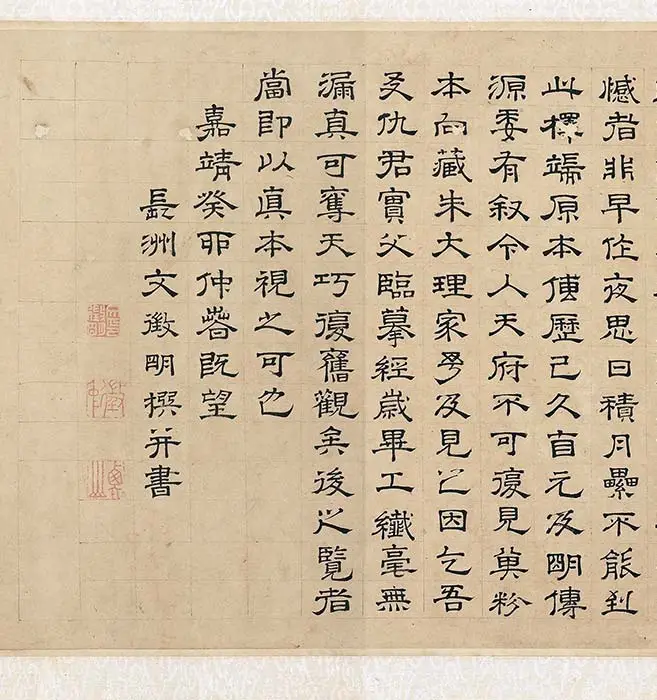 憾者非早作夜思日積月纍不能到
此擇端原本傳歷已久自元及明傳
源委有叙今入天府不可復見其粉
本向藏朱大理家及見之因乞吾
友仇君實父臨摹經歲畢工纖毫無
漏真可奪天巧復舊觀矣後之覽者
當即以真本視之可也
嘉靖癸卯仲春既望
長洲文徵明撰并書